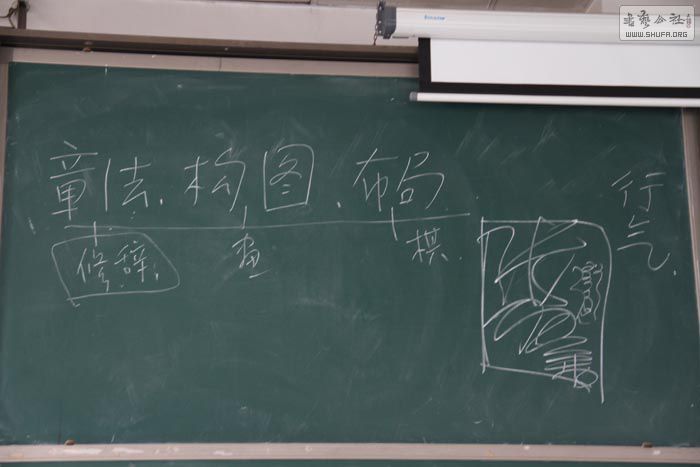 書藝公社
WWW.SHUFA.ORG
章法.构图.布局
行气.
修辞.
画
棋.